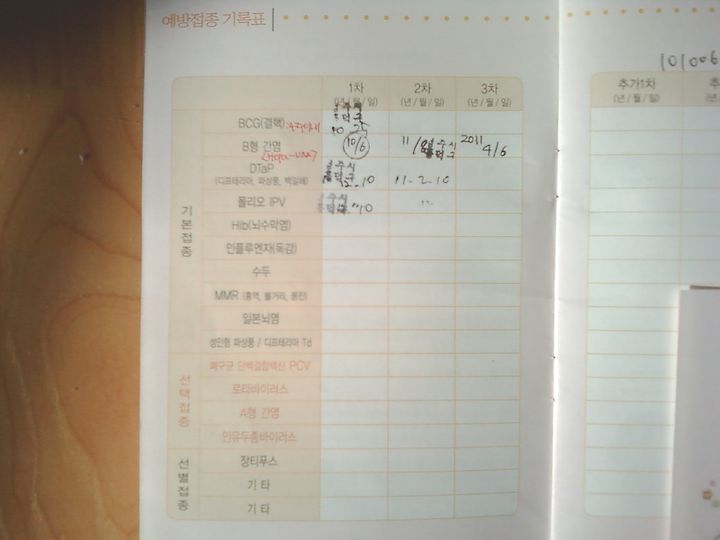 예방접종 기록표
101006
1차 2차 3차 추가1차
(년/월/일) (년/월/일) (년/월/일) (년/월/일)
BCG(결핵)
10
B형 간염 10/6 11/8 2011 4/6
DTaP
(디프테리아, 파상풍, 백일해) 12-10 11-2-10
폴리오 IPV 〃 10 〃
기본접종
Hib(뇌수막염)
인플루엔자(독감)
수두
MMR (홍역, 볼거리, 풍진)
일본뇌염
성인형 파상풍 / 디프테리아 Td
선택접종
폐구균 단백결합백신 PCV
로타바이러스
A형 간염
인유두종바이러스
선별접종
장티푸스
기 타
기 타